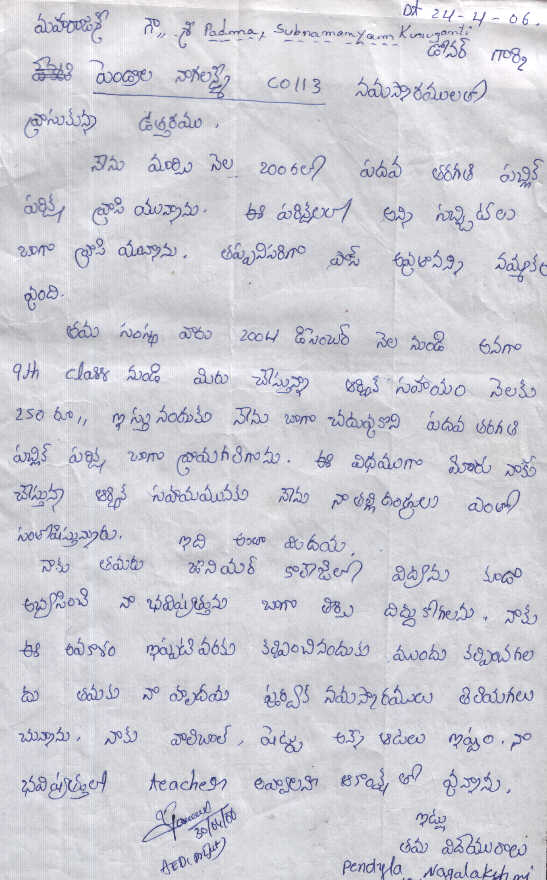 Dt 24-4-06.
మహారాజశ్రీ గౌ,, శ్రీ Padma, Subramanyam Kuruganti
డోనర్ గార్కి
పెండ్యాల నాగలక్ష్మి CO113 నమస్కారములతో
వ్రాసుకున్న ఉత్తరము.
నేను మార్చి నెల 2006లో పదవ తరగతి పబ్లిక్
పరీక్ష వ్రాసి యున్నాను. ఈ పరీక్షలలో అన్ని సబ్జెక్టులు
బాగా వ్రాసి యున్నాను. తప్పనిసరిగా పాస్ అవుతానన్న నమ్మకం
వుంది.
తమ సంస్థ వారు 2004 డిసెంబర్ నెల నుండి అనగా
9th class నుండి మీరు చేస్తున్న ఆర్థిక సహాయం నెలకు
250 రూ,, ఇస్తున్నందుకు నేను బాగా చదువుకొని పదవ తరగతి
పబ్లిక్ పరీక్ష బాగా వ్రాయగలిగాను. ఈ విధముగా మీరు నాకు
చేస్తున్న ఆర్థిక సహాయమునకు నేను నా తల్లిదండ్రులు ఎంతో
సంతోషిస్తున్నారు. ఇది అంతా మీ దయ.
నాకు తమరు జూనియర్ కాలేజీలో విద్యను కూడా
అభ్యసించి నా భవిష్యత్తును బాగా తీర్చి దిద్దుకోగలను. నాకు
ఈ అవకాశం ఇప్పటి వరకు కల్పించినందుకు ముందు కల్పించగల
దు తమకు నా హృదయ పూర్వక నమస్కారములు తెలియగలు
చున్నాను. నాకు వాలీబాల్, షటిల్ అనే ఆటలు ఇష్టం. నా
భవిష్యత్తులో teacherని అవ్వాలనే ఆకాంక్షతో వున్నాను.
30/04/06
ఇట్లు
తమ విధేయురాలు
Pendyla Nagalakshmi